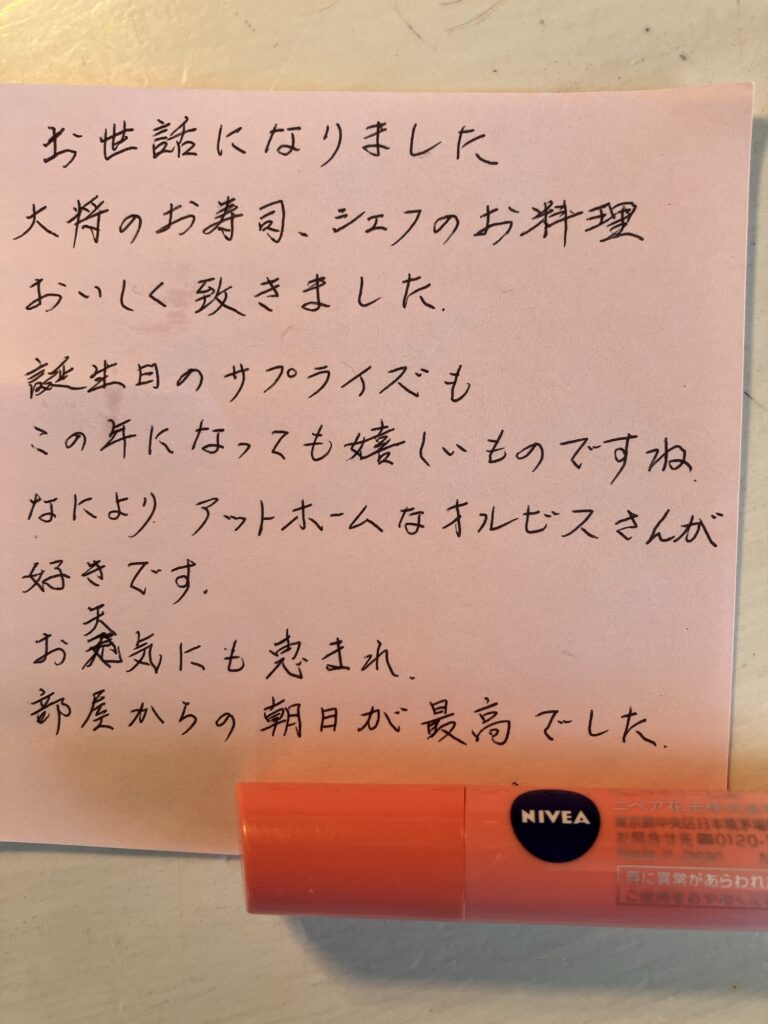 お世話になりました
大将のお寿司、シェフのお料理
おいしく致きました.
誕生日のサプライズも
この年になっても嬉しいものですね
なにより アットホームなオルビスさんが
好きです.
お天気にも恵まれ.
部屋からの朝日が最高でした.
NIVEA
ニベア花王株式会社
東京都中央区日本橋茅場
お問合せ先 ☎0120-
Made in Japan
唇に異常があらわれた